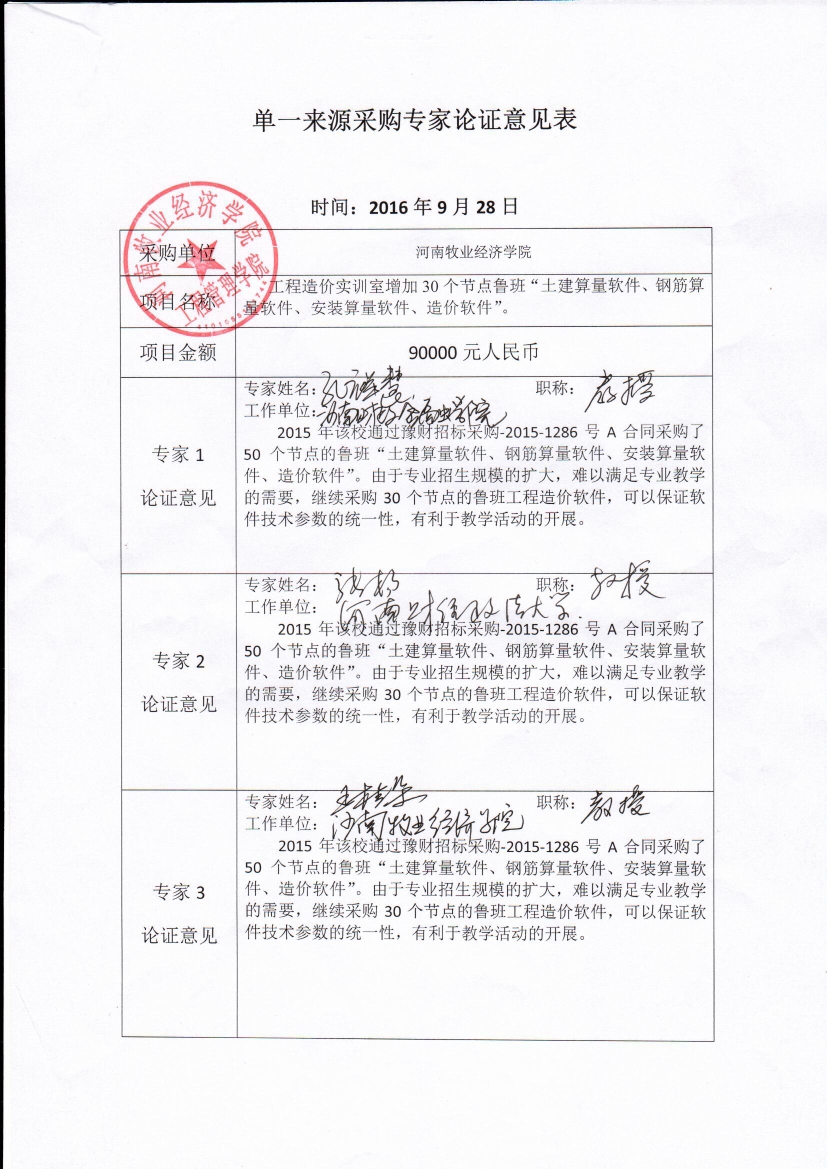 单一来源采购专家论证意见表
时间：2016年9月28日
河南牧业经济学院
工程管理学院
采购单位
河南牧业经济学院
项目名称
工程造价实训室增加30个节点鲁班“土建算量软件、钢筋算
量软件、安装算量软件、造价软件”。
项目金额
90000元人民币
专家1
论证意见
专家姓名：
职称：教授
工作单位：
2015年该校通过豫财招标采购-2015-1286号A合同采购了
50个节点的鲁班“土建算量软件、钢筋算量软件、安装算量软
件、造价软件”。由于专业招生规模的扩大，难以满足专业教学
的需要，继续采购30个节点的鲁班工程造价软件，可以保证软
件技术参数的统一性，有利于教学活动的开展。
专家2
论证意见
专家姓名：
职称：教授
工作单位：河南财经政法大学
2015年该校通过豫财招标采购-2015-1286号A合同采购了
50个节点的鲁班“土建算量软件、钢筋算量软件、安装算量软
件、造价软件”。由于专业招生规模的扩大，难以满足专业教学
的需要，继续采购30个节点的鲁班工程造价软件，可以保证软
件技术参数的统一性，有利于教学活动的开展。
专家3
论证意见
专家姓名：
职称：教授
工作单位：河南牧业经济学院
2015年该校通过豫财招标采购-2015-1286号A合同采购了
50个节点的鲁班“土建算量软件、钢筋算量软件、安装算量软
件、造价软件”。由于专业招生规模的扩大，难以满足专业教学
的需要，继续采购30个节点的鲁班工程造价软件，可以保证软
件技术参数的统一性，有利于教学活动的开展。